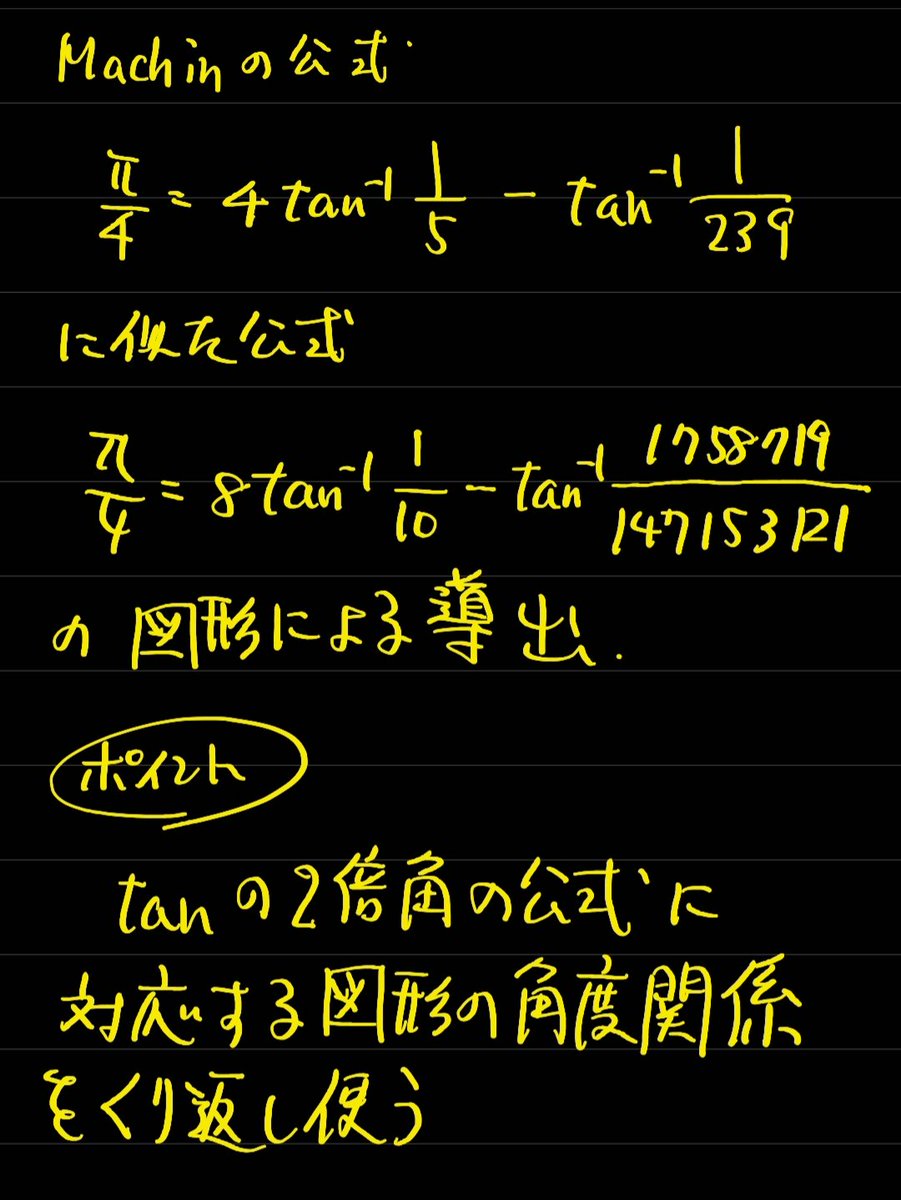 Machinの公式
π/4 = 4 tan⁻¹ 1/5 − tan⁻¹ 1/239
に似た公式
π/4 = 8 tan⁻¹ 1/10 − tan⁻¹ 1758719/147153121
の図形による導出.
ポイント
tanの2倍角の公式に
対応する図形の角度関係
をくり返し使う